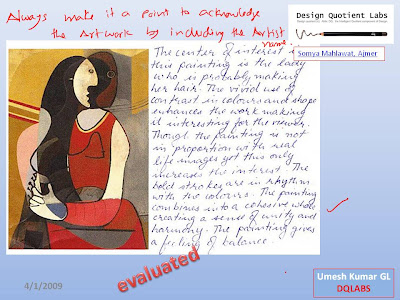 Always make it a point to acknowledge
the Artwork by including the Artist
name.
Design Quotient Labs
Somya Mahlawat, Ajmer
The center of interest in
this painting is the lady
who is probably making
her hair. The vivid use of
contrast in colours and shape
enhances the work making
it interesting for the viewer.
Though the painting is not
in proportion with real
life images yet this only
increases the interest. The
bold strokes are in rhythm
with the colours. The painting
combines into a cohesive whole
creating a sense of unity and
harmony. The painting gives
a feeling of balance.
evaluated
4/1/2009
Umesh Kumar GL
DQLABS